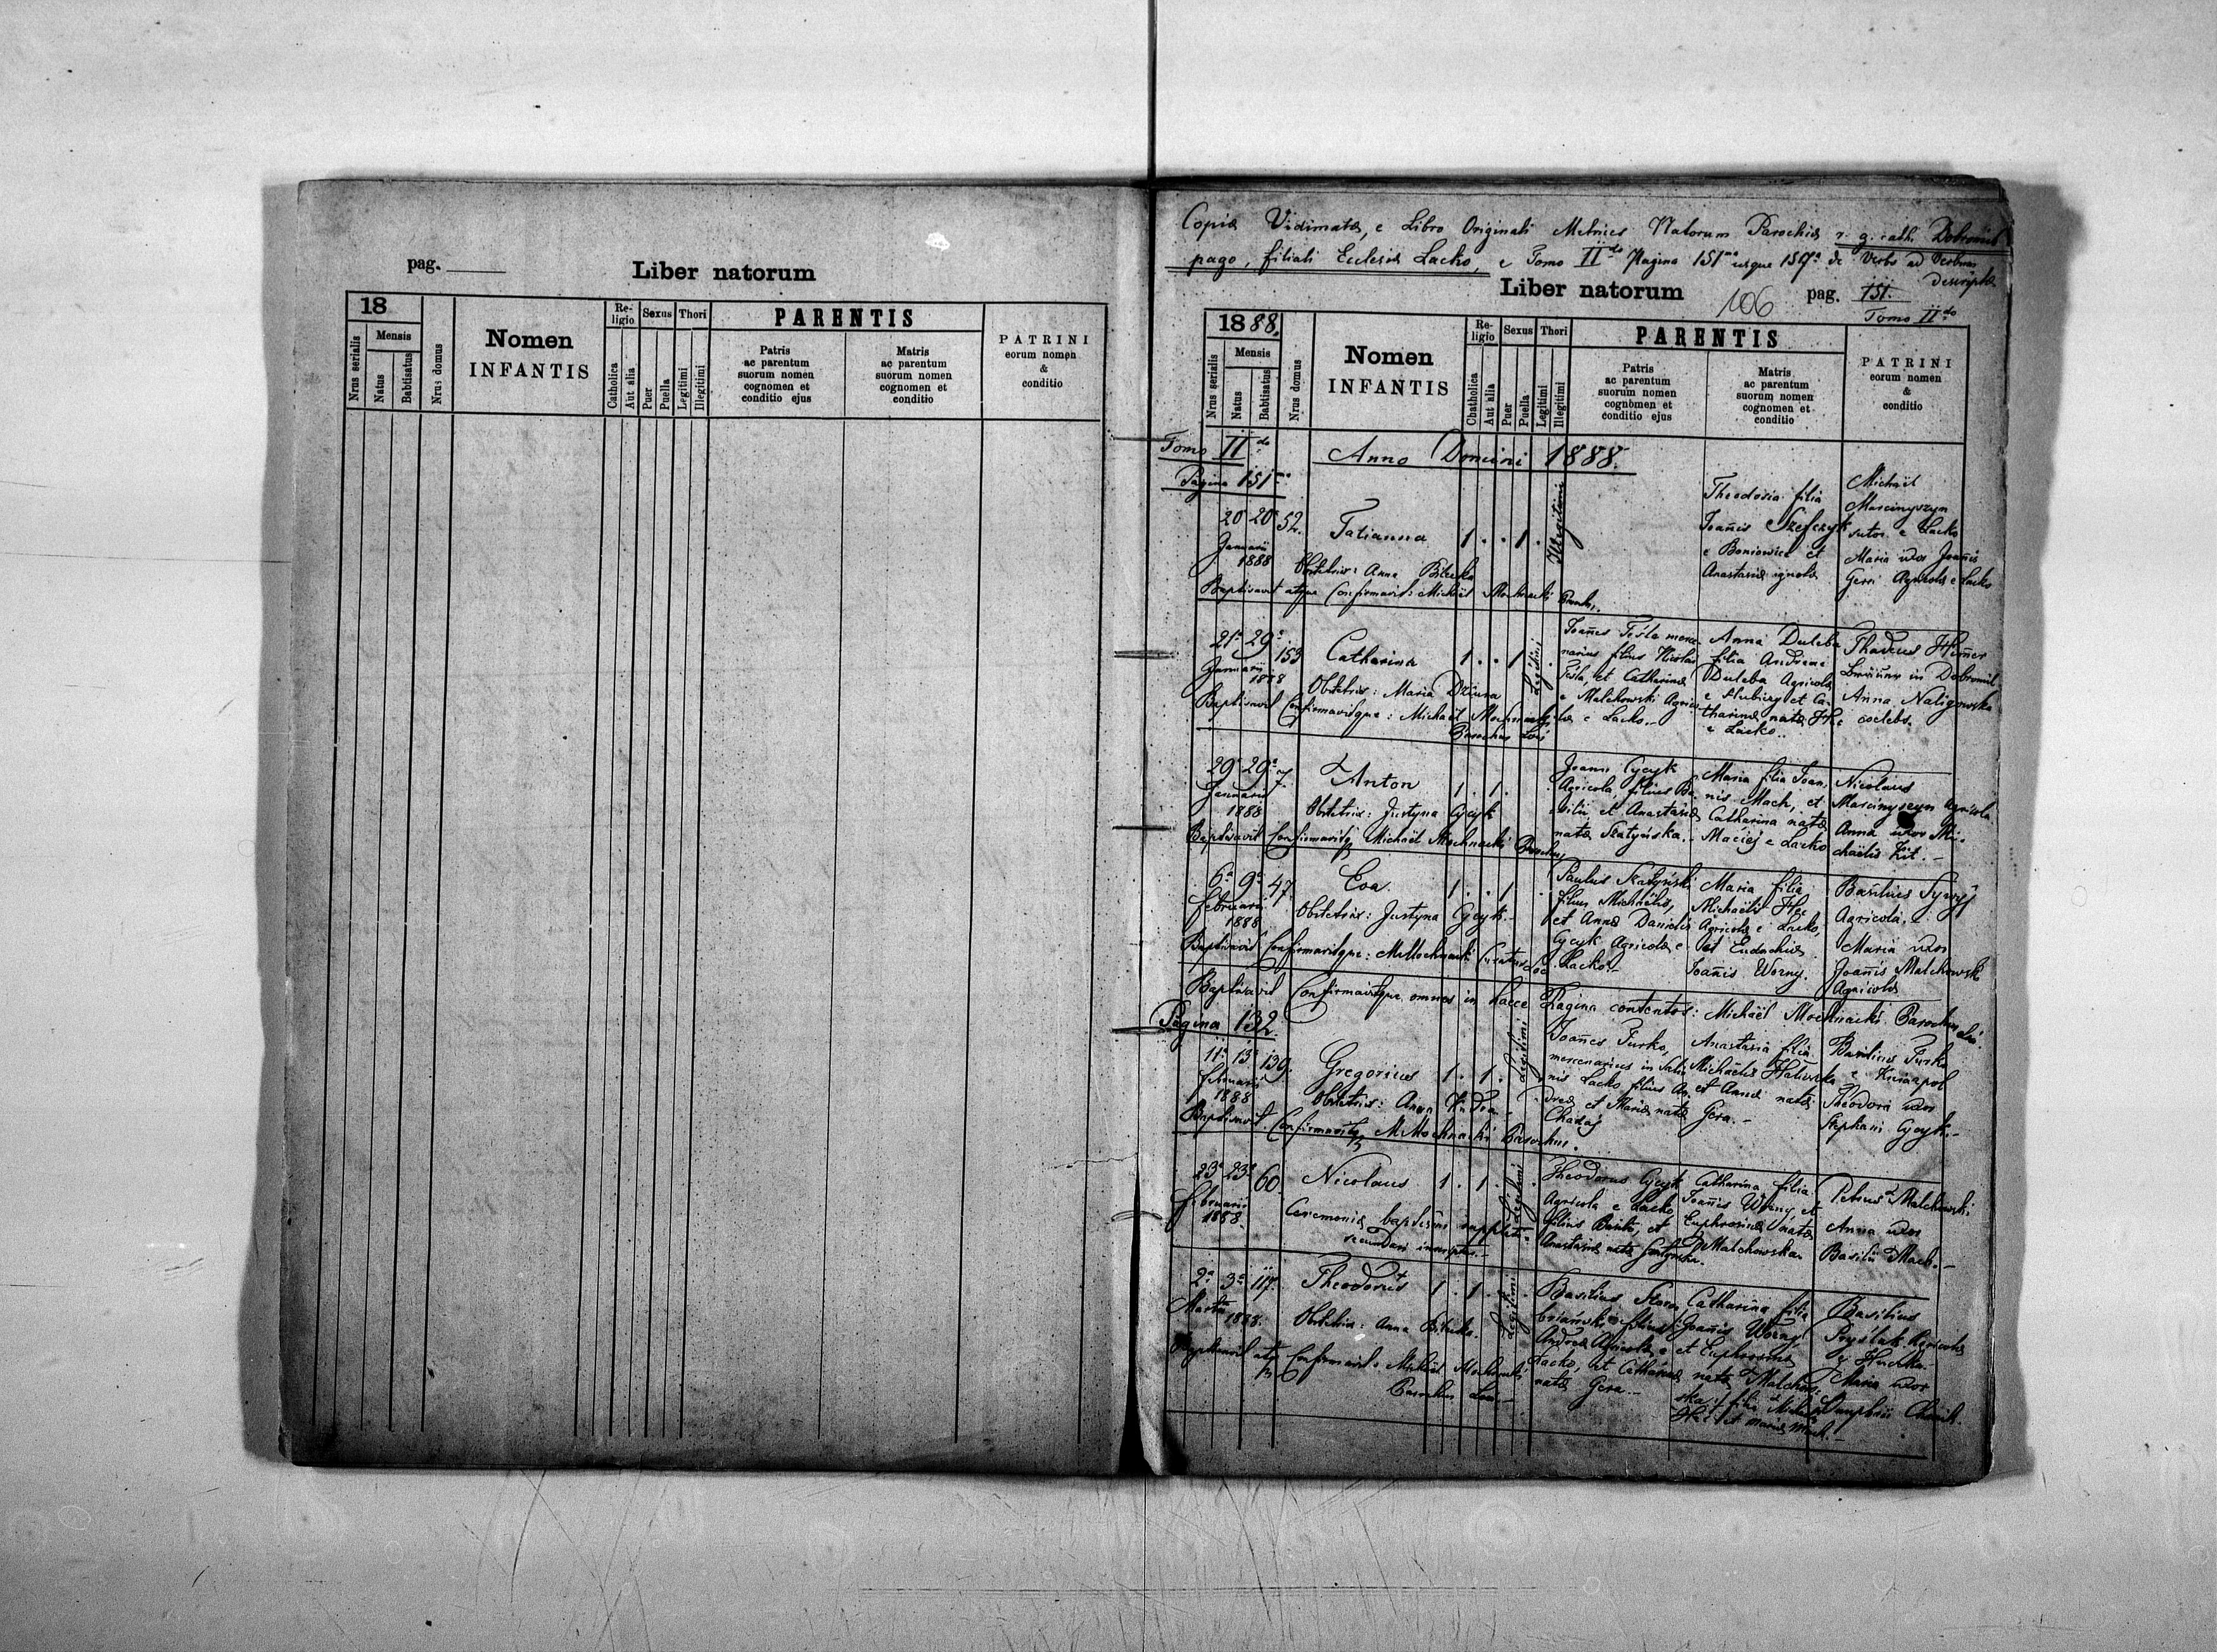 pag.
Liber natorum
18
Nrus serialis
Mensis
Natus
Babtisatus
Nrus domus
Nomen
INFANTIS
Re-
ligio
Catholica
Aut alia
Sexus
Puer
Puella
Thori
Legitimi
Illegitimi
PARENTIS
Patris
ac parentum
suorum nomen
cognomen et
conditio ejus
Matris
ac parentum
suorum nomen
cognomen et
conditio
PATRINI
eorum nomen
&
conditio
Copia Vidimata, e Libro Originali Metrices Natorum Parochiæ r. g. cath. Dobromil
pago, filiali Eclesiæ Lacko, e Tomo II do Pagina 151 usque 157 de Verbo ad Verbum
descripta
Liber natorum
106
pag. 151.
Tomo II do
1888.
Nrus serialis
Mensis
Natus
Babtisatus
Nrus domus
Nomen
INFANTIS
Re-
ligio
Chatholica
Aut alia
Sexus
Puer
Puella
Thori
Legitimi
Illegitimi
PARENTIS
Patris
ac parentum
suorum nomen
cognomen et
conditio ejus
Matris
ac parentum
suorum nomen
cognomen et
conditio
PATRINI
eorum nomen
&
conditio
Tomo II do
Anno Domini 1888.
Pagina 151
20 20 52.
Januarii
1888
Tatianna
1 . . 1 .
Illegitimi
Obstetrix: Anna
Baptisavit atque Confirmavit: Michaël Mochnacki
Theodosia filia
Joannis Szefczyk
e Boniowice et
Anastasiæ ignota
Michaël
Marcinyszyn
sutor e Lacko
Maria uxor Joannis
Gerri Agricolæ e Lacko
21 29 153
Januarii
1888
Catharina
1 . . 1
Legitimi
Obstetrix: Maria
Baptisavit Confirmavitque: Michaël Mochnacki
Parochus Loci
Joannes Teśla merce-
narius filius Nicolai
Teśla, et Catharinæ
e Malchowski Agrico-
læ e Lacko.
Anna Duleba
filia Andreæ
Duleba Agricolæ
e et Ca-
tharinæ natæ
e Lacko.
Thadeus
in Dobromil
Anna Naligowska
coelebs.
29 29 7.
Januarii
1888
Anton
1 . 1 .
Obstetrix: Justyna Cycyk
Baptisavit Confirmavitq Michaël Mochnacki Parochus
Joannes Cycyk
Agricola, filius Ba-
silii et Anastasiæ
natæ Skatyńska.
Maria filia Joan-
nis Mach, et
Catharina natæ
Maciej e Lacko
Nicolaus
Marcinyszyn Agricola
Anna uxor Mi-
chaëlis Kit.
6 9 47.
Februarii
1888
Eva
1 . . 1
Obstetrix: Justyna Cycyk.
Baptisavit Confirmavitque: M Mochnacki
Paulus Skatyński
filius Michaëlis,
et Annæ Danielis
Cycyk Agricolæ e
Lacko.
Maria filia
Michaëlis
Agricolæ e Lacko,
et Eudochiæ
Joannis Worny.
Basilius
Agricola.
Maria uxor
Joannis Malchowski
Agricolæ
Baptisavit Confirmavitque omnes in hacce Pagina contentos: Michaël Mochnacki Parochus
Pagina 132.
11 13 139.
Februarii
1888
Gregorius
1 . 1 .
Legitimi
Obstetrix: Anna
Baptisavit Confirmavitq M Mochnacki Parochus.
Joannes Turko,
mercenarius in Sali-
nis Lacko filius An-
dreæ et Mariæ natæ
Anastasia filia
Michaëlis
et Annæ natæ
Gera.
Basilius Turko
e Kniazpol
Theodora uxor
Stephani Cycyk.
23 23 60.
Februarii
1888.
Nicolaus
1 . 1 .
Legitimi
Ceremoniæ baptismi suppletæ
Theodorus Cycyk
Agricola e Lacko
filius et
Anastasiæ natæ
Catharina filia
Joannis Worny et
Euphrosinæ natæ
Malchowska
Petrus Malchowski
Anna uxor
Basilii Mach.
2 3 117.
Martii
1888.
Theodorus
1 . 1 .
Legitimi
Obstetrix: Anna
Baptisavit atq Confirmavit: Michaël Mochnacki
Parochus Loci
Basilius
filius
Andreæ Agricolæ e
Lacko, et Catharinæ
natæ Gera.
Catharina filia
Joannis Worny,
et Euphrosinæ
natæ Malchow-
ska
Basilius
Pryślak Agricola
e
Maria uxor